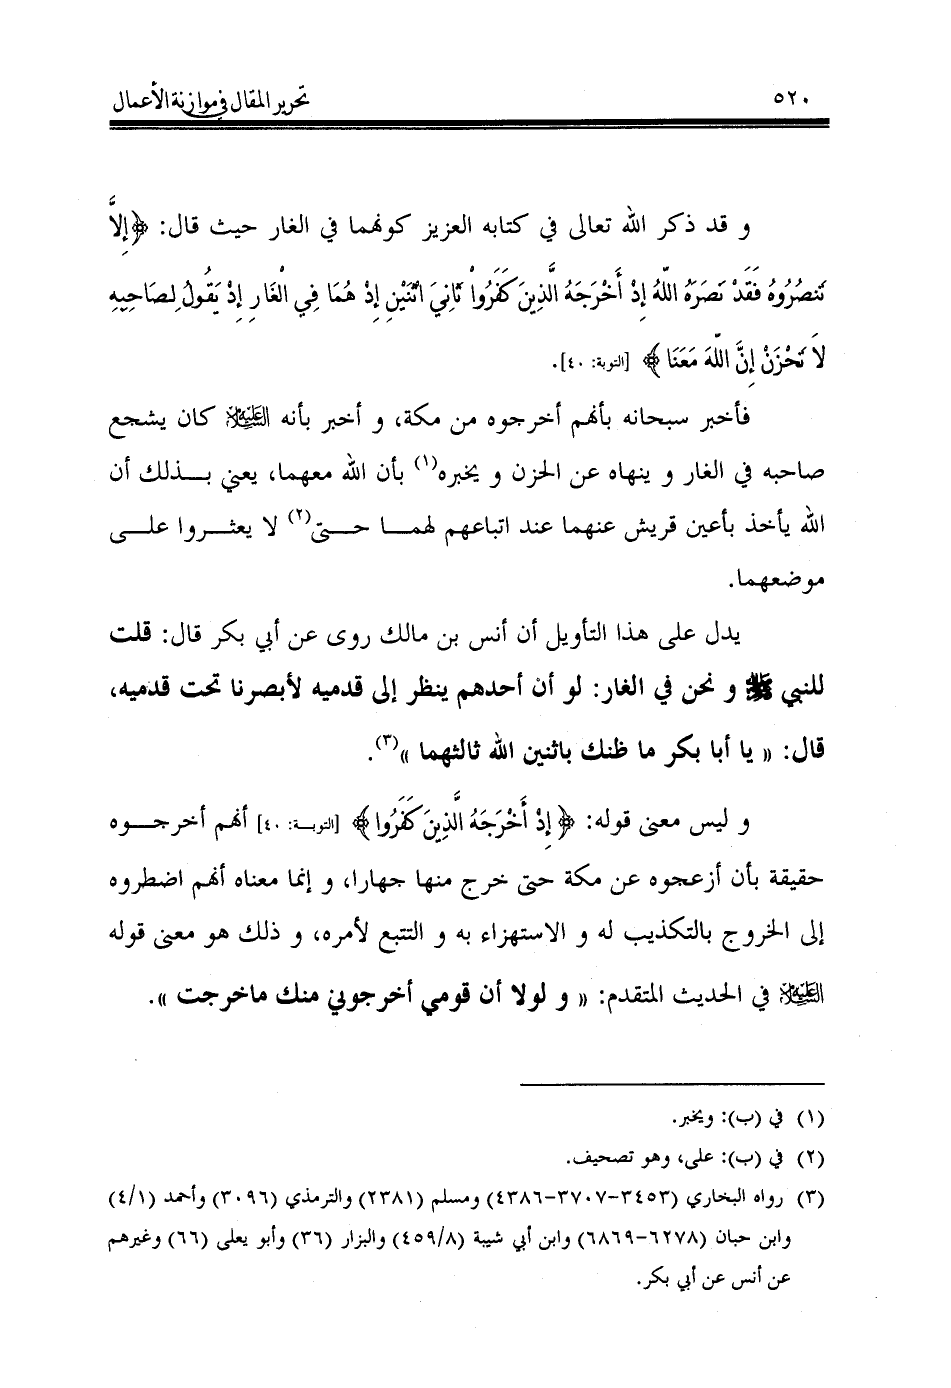 ٥٢٠ تحرير المقال في موازنة الأعمال
و قد ذكر الله تعالى في كتابه العزيز كونهما في الغار حيث قال: ﴿إِلاَّ
تَنصُرُوهُ فَقَدْ نَصَرَهُ اللّهُ إِذْ أَخْرَجَهُ الَّذِينَ كَفَرُواْ ثَانِيَ اثْنَيْنِ إِذْ هُمَا فِي الْغَارِ إِذْ يَقُولُ لِصَاحِبِهِ
لاَ تَحْزَنْ إِنَّ اللّهَ مَعَنَا﴾ [التوبة: ٤٠].
فأخبر سبحانه بأنهم أخرجوه من مكة، و أخبر بأنه عليه السلام كان يشجع
صاحبه في الغار و ينهاه عن الحزن و يخبره(١) بأن الله معهما، يعني بـــذلك أن
الله يأخذ بأعين قريش عنهما عند اتباعهم لهمـــا حـــتى(٢) لا يعثـــروا علـــى
موضعهما.
يدل على هذا التأويل أن أنس بن مالك روى عن أبي بكر قال: قلت
للنبي ﷺ و نحن في الغار: لو أن أحدهم ينظر إلى قدميه لأبصرنا تحت قدميه،
قال: « يا أبا بكر ما ظنك باثنين الله ثالثهما »(٣).
و ليس معنى قوله: ﴿إِذْ أَخْرَجَهُ الَّذِينَ كَفَرُوا﴾ [التوبـة: ٤٠] أنهم أخرجـــوه
حقيقة بأن أزعجوه عن مكة حتى خرج منها جهارا، و إنما معناه أنهم اضطروه
إلى الخروج بالتكذيب له و الاستهزاء به و التتبع لأمره، و ذلك هو معنى قوله
عليه السلام في الحديث المتقدم: « و لولا أن قومي أخرجوني منك ماخرجت ».
(١) في (ب): ويخبر.
(٢) في (ب): على، وهو تصحيف.
(٣) رواه البخاري (٣٤٥٣-٣٧٠٧-٤٣٨٦) ومسلم (٢٣٨١) والترمذي (٣٠٩٦) وأحمد (٤/١)
وابن حبان (٦٢٧٨-٦٨٦٩) وابن أبي شيبة (٤٥٩/٨) والبزار (٣٦) وأبو يعلى (٦٦) وغيرهم
عن أنس عن أبي بكر.